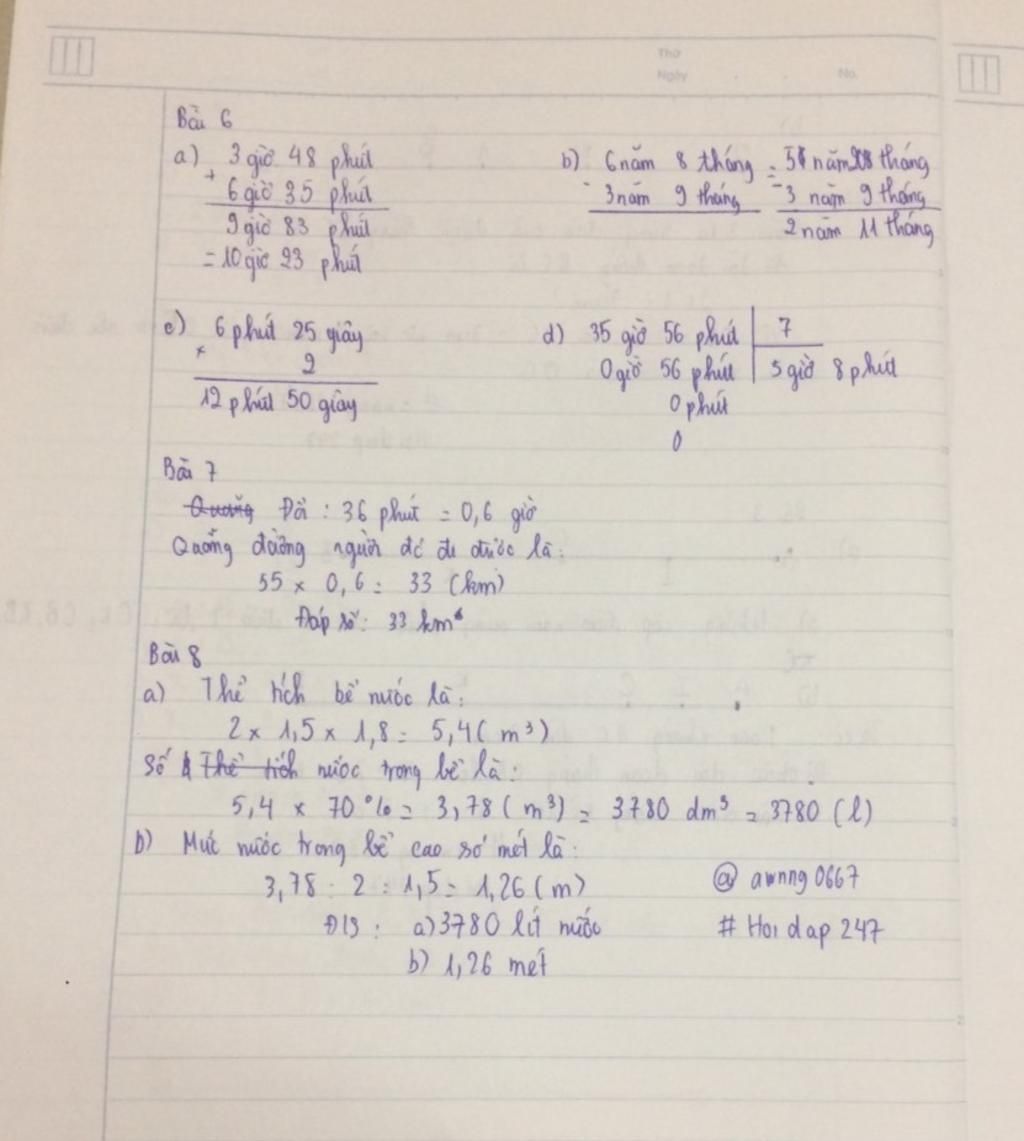 Thứ
Ngày No.
Bài 6
a) 3 giờ 48 phút b) 6 năm 8 tháng = 5 năm 20 tháng
+ 6 giờ 35 phút - 3 năm 9 tháng - 3 năm 9 tháng
9 giờ 83 phút 2 năm 11 tháng
= 10 giờ 23 phút
c) 6 phút 25 giây d) 35 giờ 56 phút 7
× 2 0 giờ 56 phút 5 giờ 8 phút
12 phút 50 giây 0 phút
0
Bài 7
Quãng Đổi : 36 phút = 0,6 giờ
Quãng đường người đó đi được là:
55 × 0,6 = 33 (km)
Đáp số: 33 km
Bài 8
a) Thể tích bể nước là:
2 × 1,5 × 1,8 = 5,4 (m³)
Số Thể tích nước trong bể là:
5,4 × 70 % = 3,78 (m³) = 3780 dm³ = 3780 (l)
b) Mức nước trong bể cao số mét là:
3,78 : 2 : 1,5 = 1,26 (m) @ awnng0667
Đ/S : a) 3780 lít nước # Hoi dap 247
b) 1,26 mét